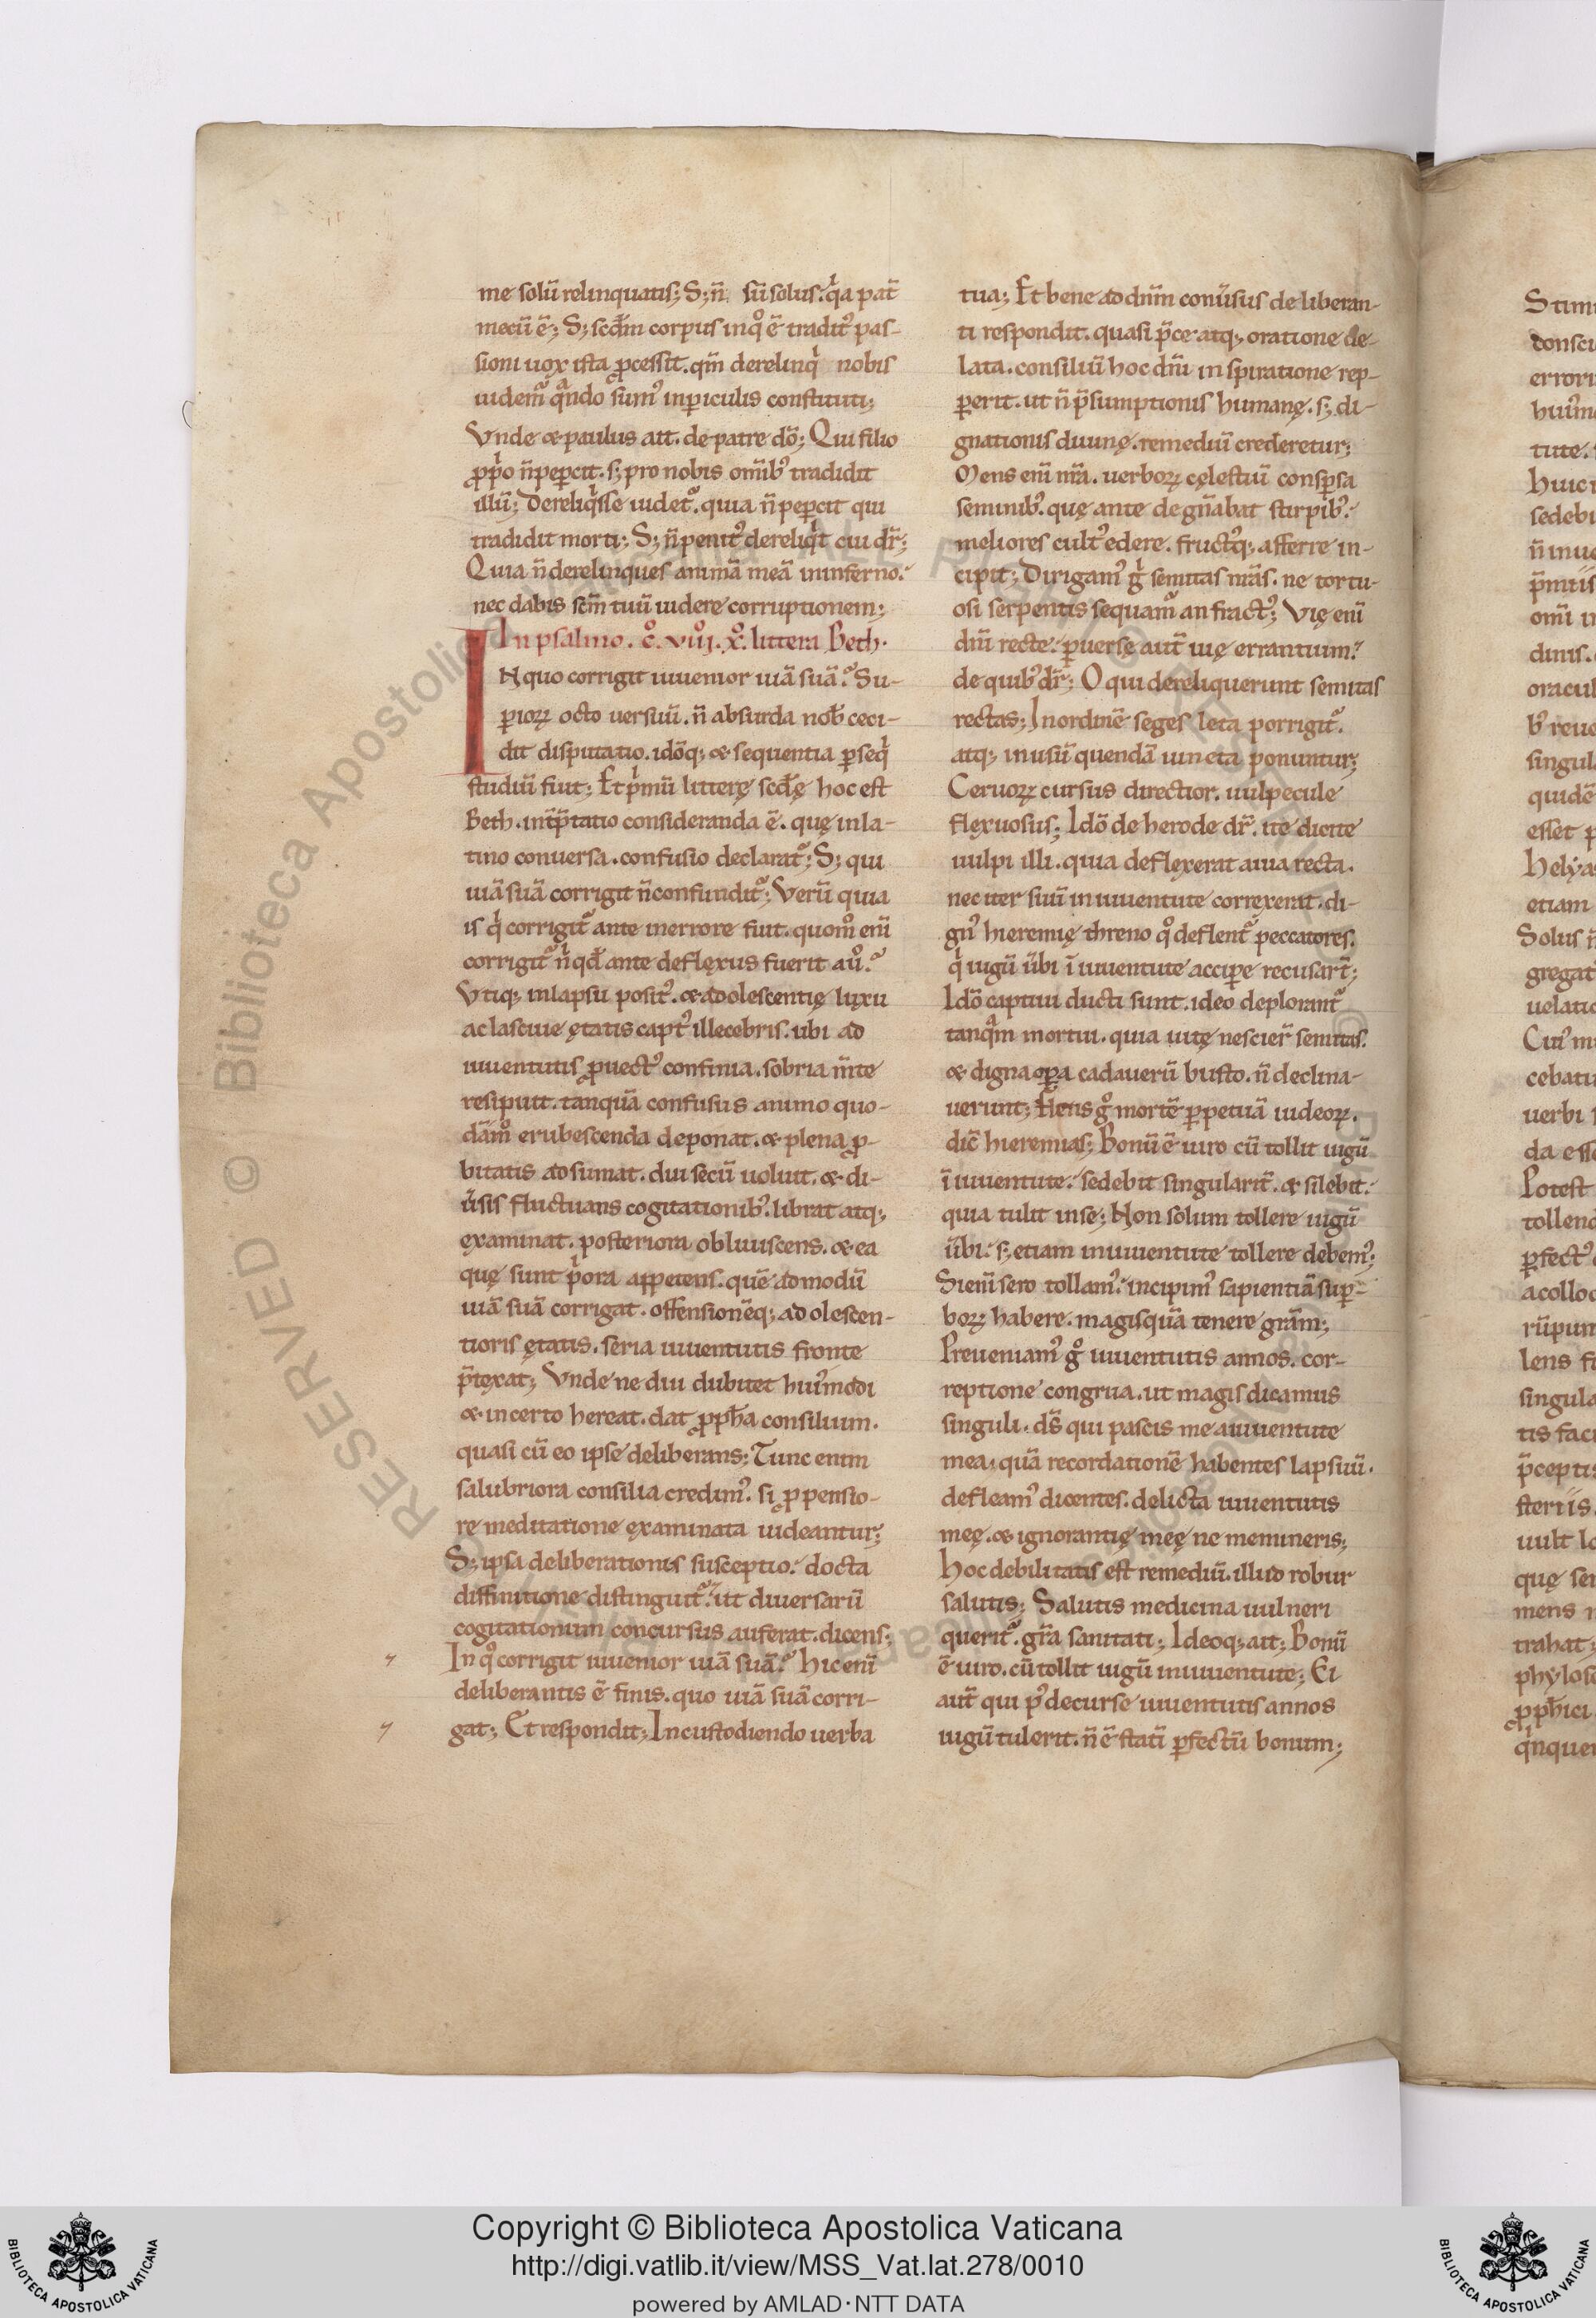 me solũ relinquatis; S; n̄ sũ solus. qͥa pat̄
mecũ ē; S; scd̄m corpus in qͦ ē tradit᷒ pas-
sioni uox ista ꝓcessit. qm̄ derelinqͥ nobis
uidem᷑ qͣndo sum᷒ in ꝑiculis constituti;
Vnde & paulus ait. de patre dō; Qui filio
ꝓpͥo n̄ peꝑcit. s; pro nobis omīb᷒ tradidit
illũ; Dereliqͥsse uidet᷑. quia n̄ peꝑcit qui
tradidit morti; S; n̄ penit᷒ dereliqͥt cui dr̄;
Quia n̄ derelinques animā meā in inferno.
nec dabis scm̄ tuũ uidere corruptionem;
In psalmo. c̊. xviij. x̊. littera Beth.
IN quo corrigit iuuenior uiā suā? Su-
ꝑioꝝ octo uersuũ. n̄ absurda nob̄ ceci-
dit disputatio. idōq; & sequentia ꝑseqͥ
studiũ fuit; Et pͥmũ litterę scd̄ę hoc est
Beth. int̄p̄tatio consideranda ē. quę in la-
tino conuersa. confusio declarat᷑; S; qui
uiā suā corrigit n̄ confundit᷑; Verũ quia
is qͥ corrigit᷑ ante in errore fuit. quom̊ enī
corrigit᷑ n̄ qͥd̄ ante deflęxus fuerit auͦ?
Vtiq; in lapsu posit᷒. & adolescentię luxu
ac lasciue ętatis capt᷒ illecebris. ubi ad
iuuentutis ꝓuect᷒ confinia. sobria m̄te
resipuit. tanquā confusus animo quo-
dām̊ erubescenda deponat. & plena ꝓ-
bitatis adsumat. diu secũ uoluit. & di-
ūsis fluctuans cogitationib᷒. librat atq;
ęxaminat. posteriora obliuiscens. & ea
quę sunt pͥora appetens. quē admodũ
uiā suā corrigat. offensionēq; adolescen-
tioris ętatis. seria iuuentutis fronte
p̄tęxat; Vnde ne diu dubitet hui᷒modi
& incerto hereat. dat ꝓph̄a consilium.
quasi cũ eo ipse deliberans; Tunc enim
salubriora consilia credim᷒. si ꝓpensio-
re meditatione ęxaminata uideantur;
S; ipsa deliberationis susceptio. docta
diffinitione distinguit᷑. ut diuersarũ
cogitationum concursus auferat. dicens;
In qͦ corrigit iuuenior uiā suā? hic enī
deliberantis ē finis. quo uiā suā corri-
gat; Et respondit; In custodiendo uerba
tua; Et bene ad dn̄m conūsus deliberan-
ti respondit. quasi p̄ce atq; oratione de-
lata. consiliũ hoc dn̄i inspiratione rep-
ꝑerit. ut n̄ p̄sumptionis humanę. s; di-
gnationis diuinę. remediũ crederetur;
Mens enī nr̄a. uerboꝝ cęlestiũ consꝑsa
seminib᷒. quę ante degn̄abat stirpib᷒.
meliores cult᷒ edere. fruct᷒q; afferre in-
cipit; Dirigam᷒ gͥ semitas nr̄as. ne tortu-
osi serpentis sequam᷑ anfract᷒; Vię enī
dn̄i recte. ꝑuersę aut̄ uię errantium.
de quib᷒ dr̄; O qui dereliquerunt semitas
rectas; In ordinē seges leta porrigit᷑.
atq; in usũ quendā iuncta ponuntur;
Ceruoꝝ cursus directior. uulpecule
flęxuosus; Idō de herode dr̄. ite dicite
uulpi illi. quia deflęxerat a uia recta.
nec iter suũ in iuuentute corręxerat. di-
gn᷒ hieremię threno qͦ deflent᷑ peccatores.
qͥ iugũ ūbi ī iuuentute acciꝑe recusar̄t;
Idō captiui ducti sunt. ideo deplorant᷑
tanqͣm mortui. quia uitę nescier̄ semitas.
& digna oꝑa cadauerũ busto. n̄ declina-
uerunt; Flens gͦ mortē ꝑpetuā iudeoꝝ.
dic̄ hieremias; Bonũ ē uiro cũ tollit iugũ
ī iuuentute. sedebit singularit̄. & silebit.
quia tulit in se; Non solum tollere iugũ
ūbi. s; etiam in iuuentute tollere debem᷒;
Si enī sero tollam᷒. incipim᷒ sapientiā suꝑ-
boꝝ habere. magis quā tenere grām;
Preueniam᷒ gͦ iuuentutis annos. cor-
reptione congrua. ut magis dicamus
singuli. ds̄ qui pascis me a iuuentute
mea. quā recordationē habentes lapsuũ.
defleam᷒ dicentes. delicta iuuentutis
meę. & ignorantię meę ne memineris;
Hoc debilitatis est remediũ. illud robur
salutis; Salutis medicina uulneri
querit᷑. gr̄a sanitati; Ideoq; ait; Bonũ
ē uiro. cũ tollit iugũ in iuuentute; Ei
aut̄ qui p᷒ decurse iuuentutis annos
iugũ tulerit. n̄ ē statī ꝑfectũ bonum;
Copyright © Biblioteca Apostolica Vaticana
http://digi.vatlib.it/view/MSS_Vat.lat.278/0010
powered by AMLAD·NTT DATA
BIBLIOTECA APOSTOLICA VATICANA
BIBLIOTECA APOSTOLICA VATICANA